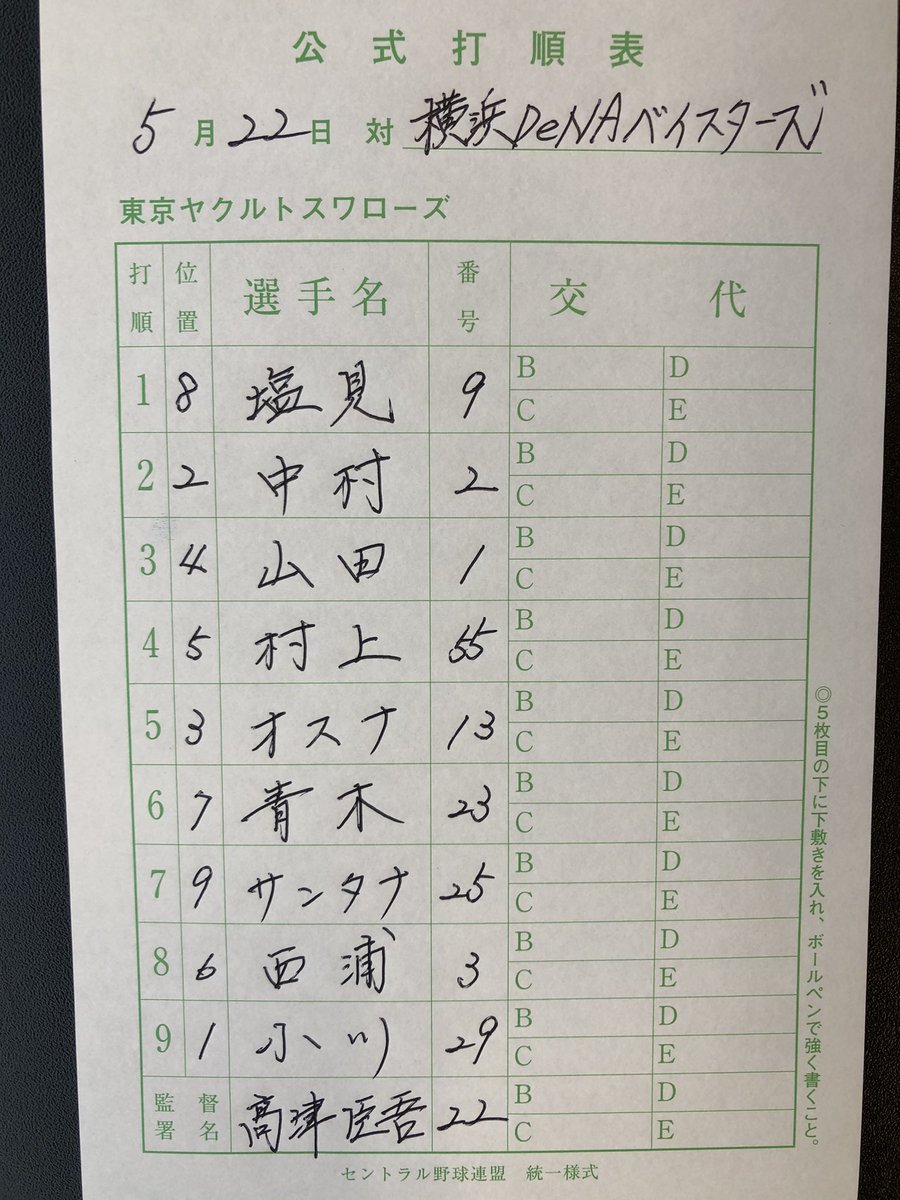 公式打順表
5月22日 対 横浜DeNAベイスターズ
東京ヤクルトスワローズ
打順 位置 選手名 番号 交代
1 8 塩見 9 B D
C E
2 2 中村 2 B D
C E
3 4 山田 1 B D
C E
4 5 村上 55 B D
C E
5 3 オスナ 13 B D
C E
6 7 青木 23 B D
C E
7 9 サンタナ 25 B D
C E
8 6 西浦 3 B D
C E
9 1 小川 29 B D
C E
監督署名 高津臣吾 22 B D
C E
◎5枚目の下に下敷きを入れ、ボールペンで強く書くこと。
セントラル野球連盟 統一様式